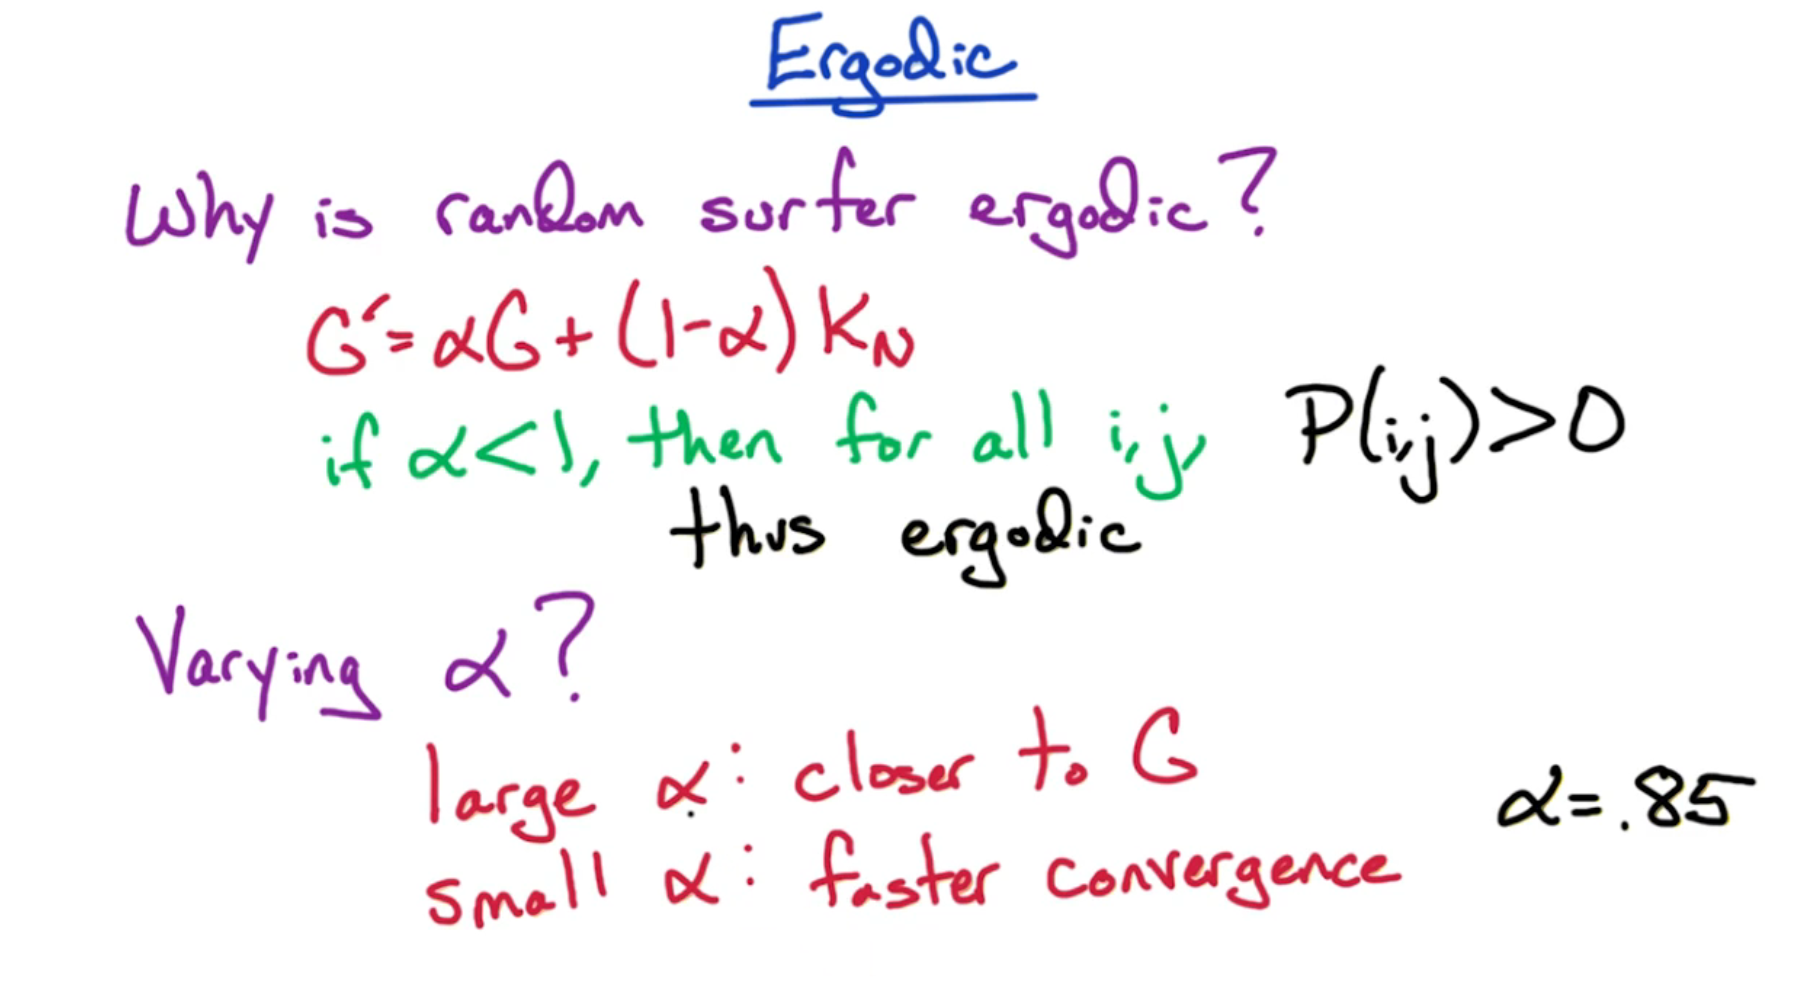 Ergodic
Why is random surfer ergodic?
G′ = αG + (1-α) K_N
if α<1, then for all i,j, P(i,j)>0
thus ergodic
Varying α?
large α: closer to G
α=.85
small α: faster convergence